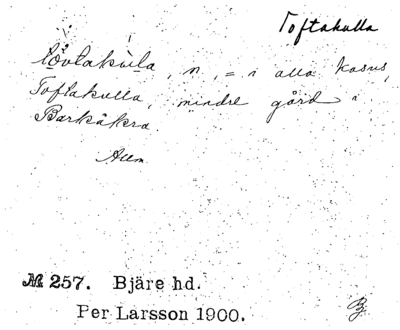 Toftakulla
, n, = i alla kasus,
Toftakulla, mindre gård i
Barkåkra.
Allm
№ 257. Bjäre hd.
Per Larsson 1900.